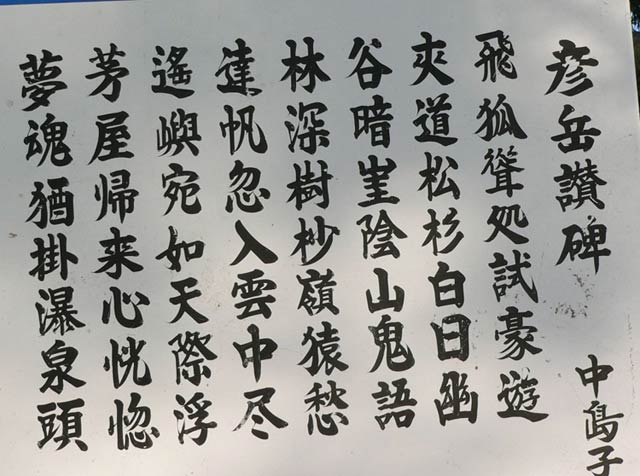 彦岳讃碑
中島子
飛狐聳処試豪遊
夾道松杉白日幽
谷暗崖陰山鬼語
林深樹杪嶺猿愁
達帆忽入雲中尽
遙嶼宛如天際浮
茅屋帰来心恍惚
夢魂猶掛瀑泉頭